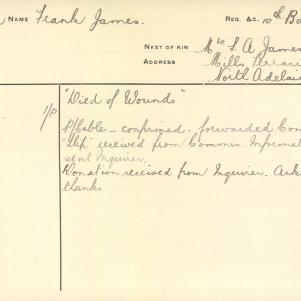 NAME Frank James. REG. &C. 10th Ba
NEXT OF KIN Mrs S. A. James
ADDRESS Mills Terrace
North Adelai
"Died of Wounds"
1/0 P/Cable - confirmed - forwarded Com
"Slip" received from Commns. Informat
sent Inquirer.
Donation received from Inquirer. Ack
thanks